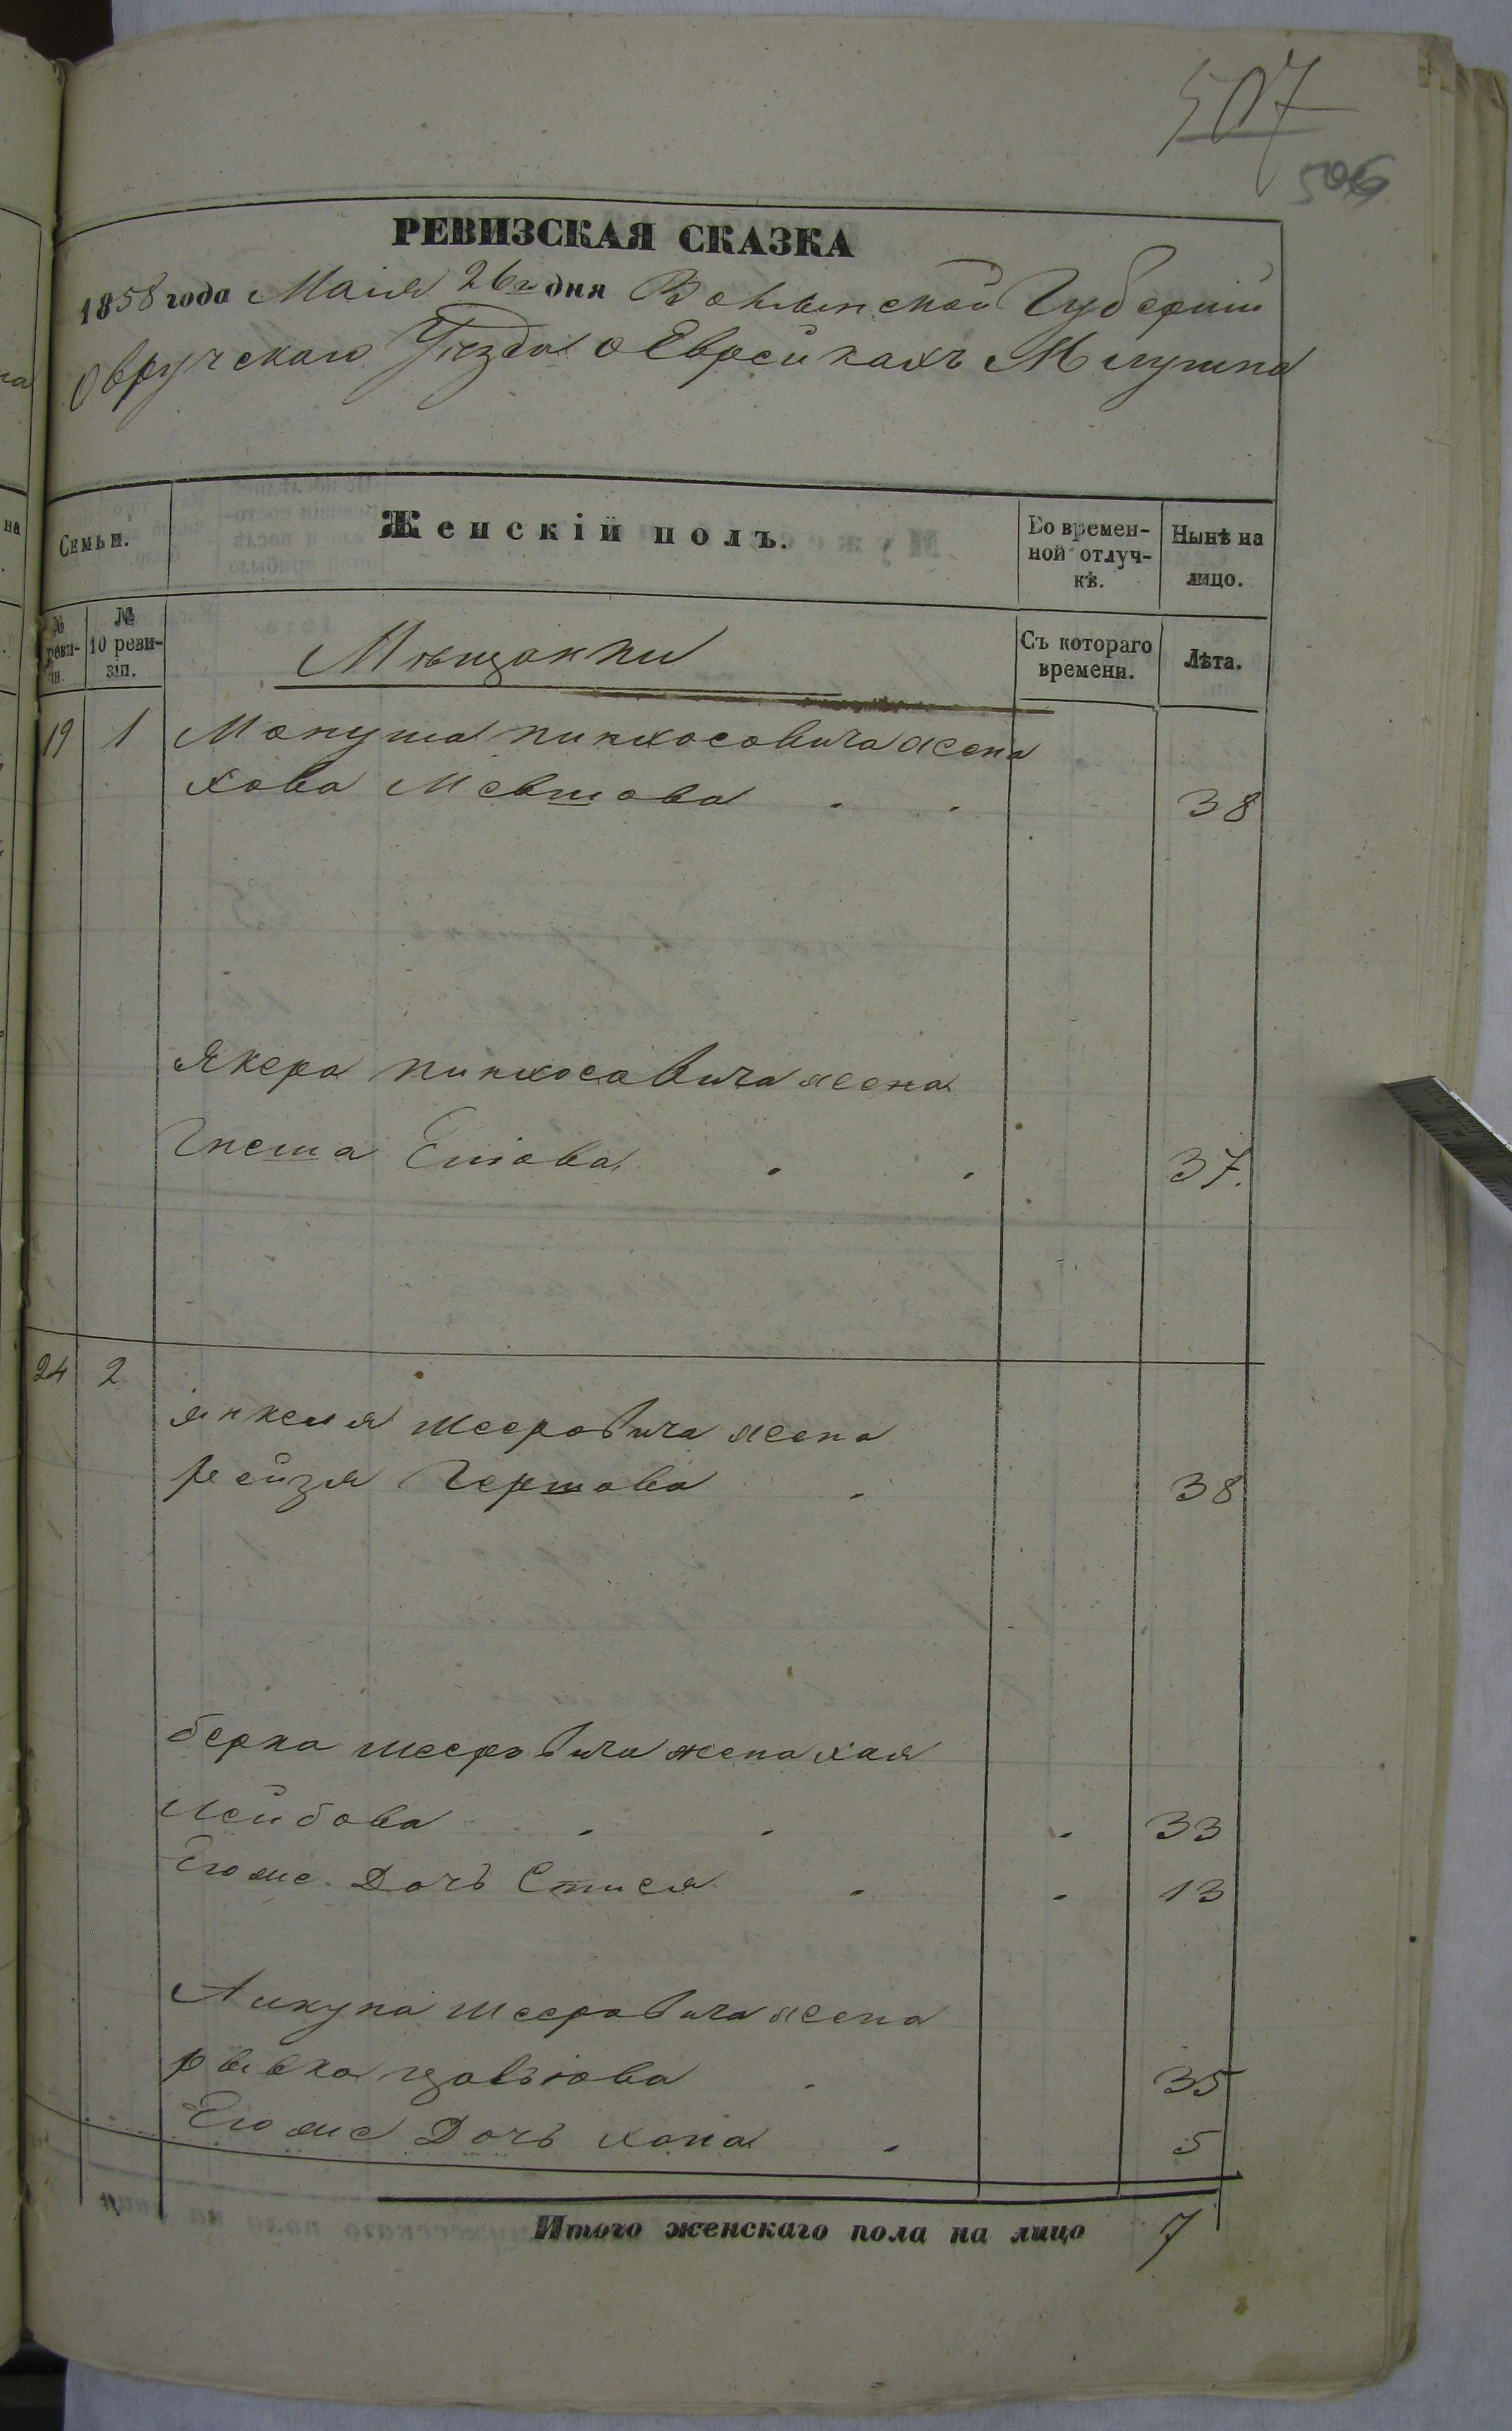 507
506
РЕВИЗСКАЯ СКАЗКА
1858 года Маія 26го дня Волынской Губерніи
Овручскаго Уѣзда о Еврейкахъ М
Семьи.
Женскій полъ.
Во времен-
ной отлуч-
кѣ.
Нынѣ на
лицо.
№
реви-
зіи.
№
10 реви-
зіи.
Мѣщанки
Съ котораго
времени.
Лѣта.
19 1 Мануша Пинхосовича жена
Хова Мевшова 38
Якера Пинхосовича жена
Гнеша 37.
24 2
Янкеля Мееровича жена
Рейзя Гершова 38
Берка Мееровича жена Хая
Лейбова 33
Егоже Дочь Стися 13
Мееровича жена
Рывка 35
Егоже Дочь Хана 5
Итого женскаго пола на лицо 7